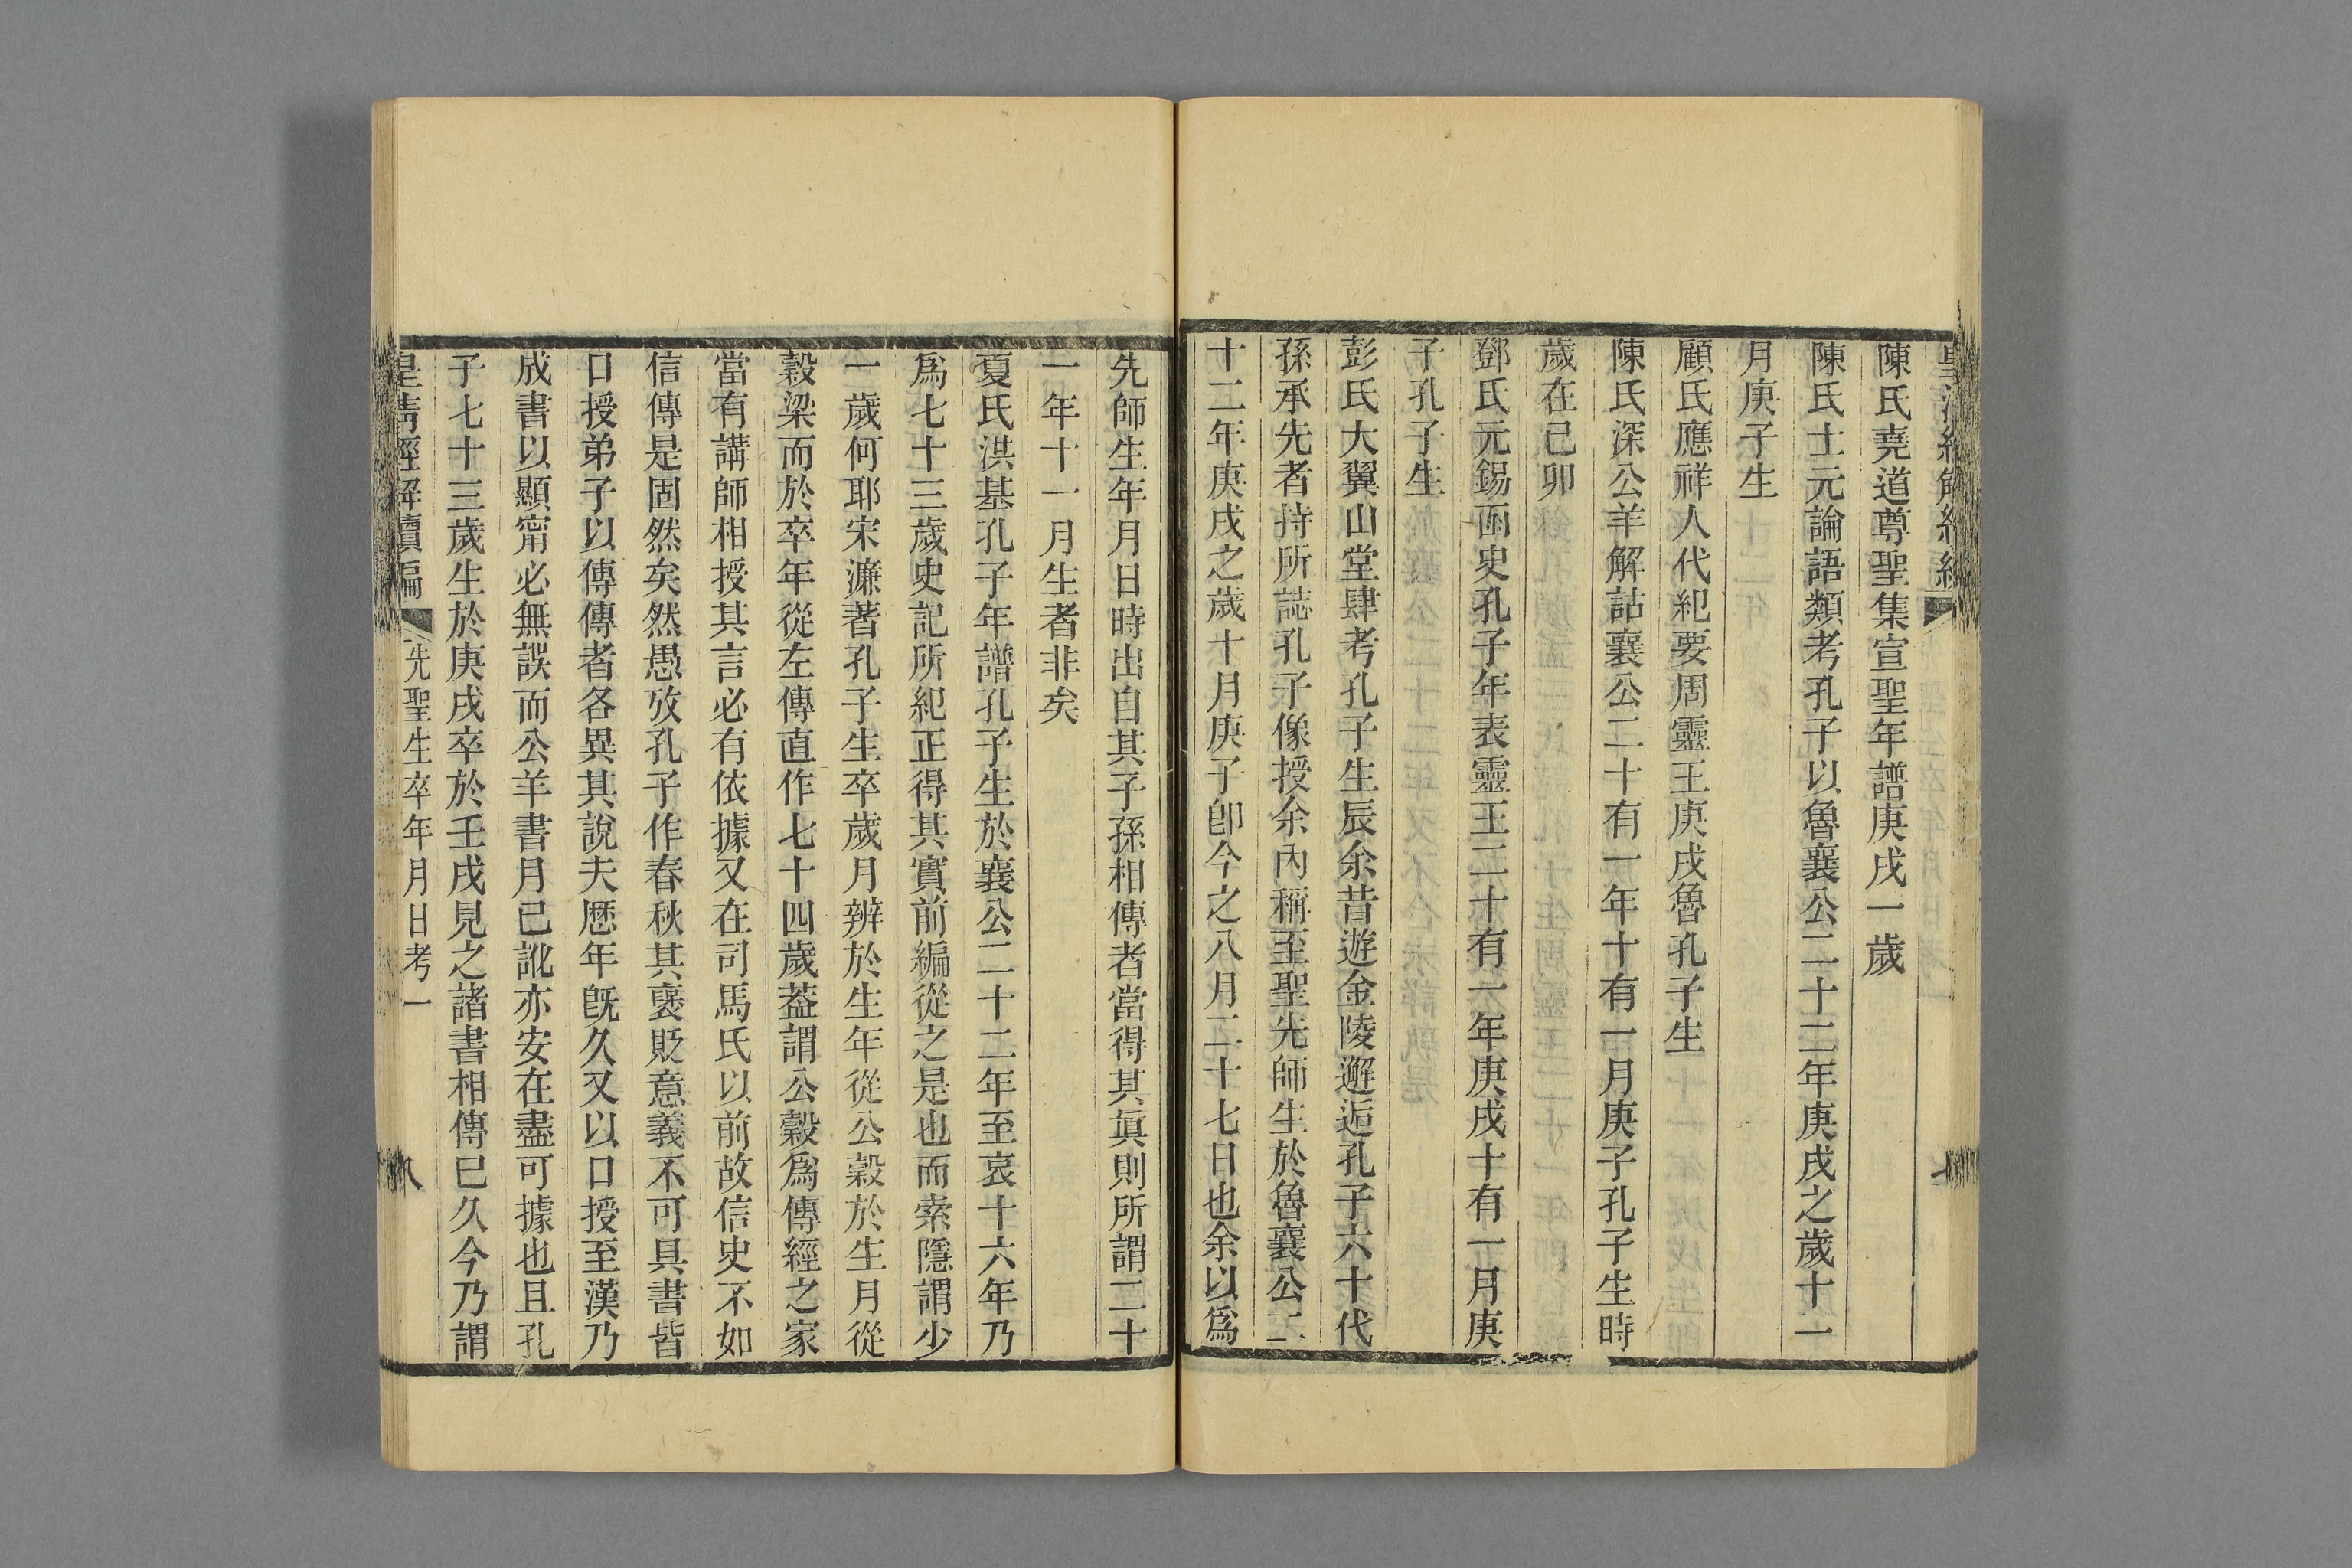 陳氏堯道尊聖集宣聖年譜庚戌一歲
陳氏士元論語類考孔子以魯襄公二十二年庚戌之歲十一
月庚子生
顧氏應祥人代紀要周靈王庚戌魯孔子生
陳氏深公羊解詁襄公二十有一年十有一月庚子孔子生時
歲在己卯
鄧氏元錫函史孔子年表靈王二十有一年庚戌十有一月庚
子孔子生
彭氏大翼山堂肆考孔子生辰余昔遊金陵邂逅孔子六十代
孫承先者持所誌孔子像授余內稱至聖先師生於魯襄公二
十二年庚戌之歲十月庚子卽今之八月二十七日也余以爲
先師生年月日時出自其子孫相傳者當得其眞則所謂二十
一年十一月生者非矣
夏氏洪基孔子年譜孔子生於襄公二十二年至哀十六年乃
爲七十三歲史記所紀正得其實前編從之是也而索隱謂少
一歲何耶宋濂著孔子生卒歲月辨於生年從公穀於生月從
穀梁而於卒年從左傳直作七十四歲葢謂公穀爲傳經之家
當有講師相授其言必有依據又在司馬氏以前故信史不如
信傳是固然矣然愚攷孔子作春秋其褒貶意義不可具書皆
口授弟子以傳傳者各異其說夫歷年旣久又以口授至漢乃
成書以顯甯必無誤而公羊書月已訛亦安在盡可據也且孔
子七十三歲生於庚戌卒於壬戌見之諸書相傳已久今乃謂
皇清經解續編
先聖生卒年月日考一
八